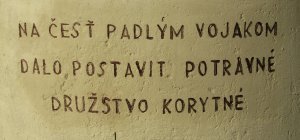 NA ČESŤ PADLÝM VOJAKOM
DALO POSTAVIT POTRAVNÉ
DRUŽSTVO KORYTNÉ